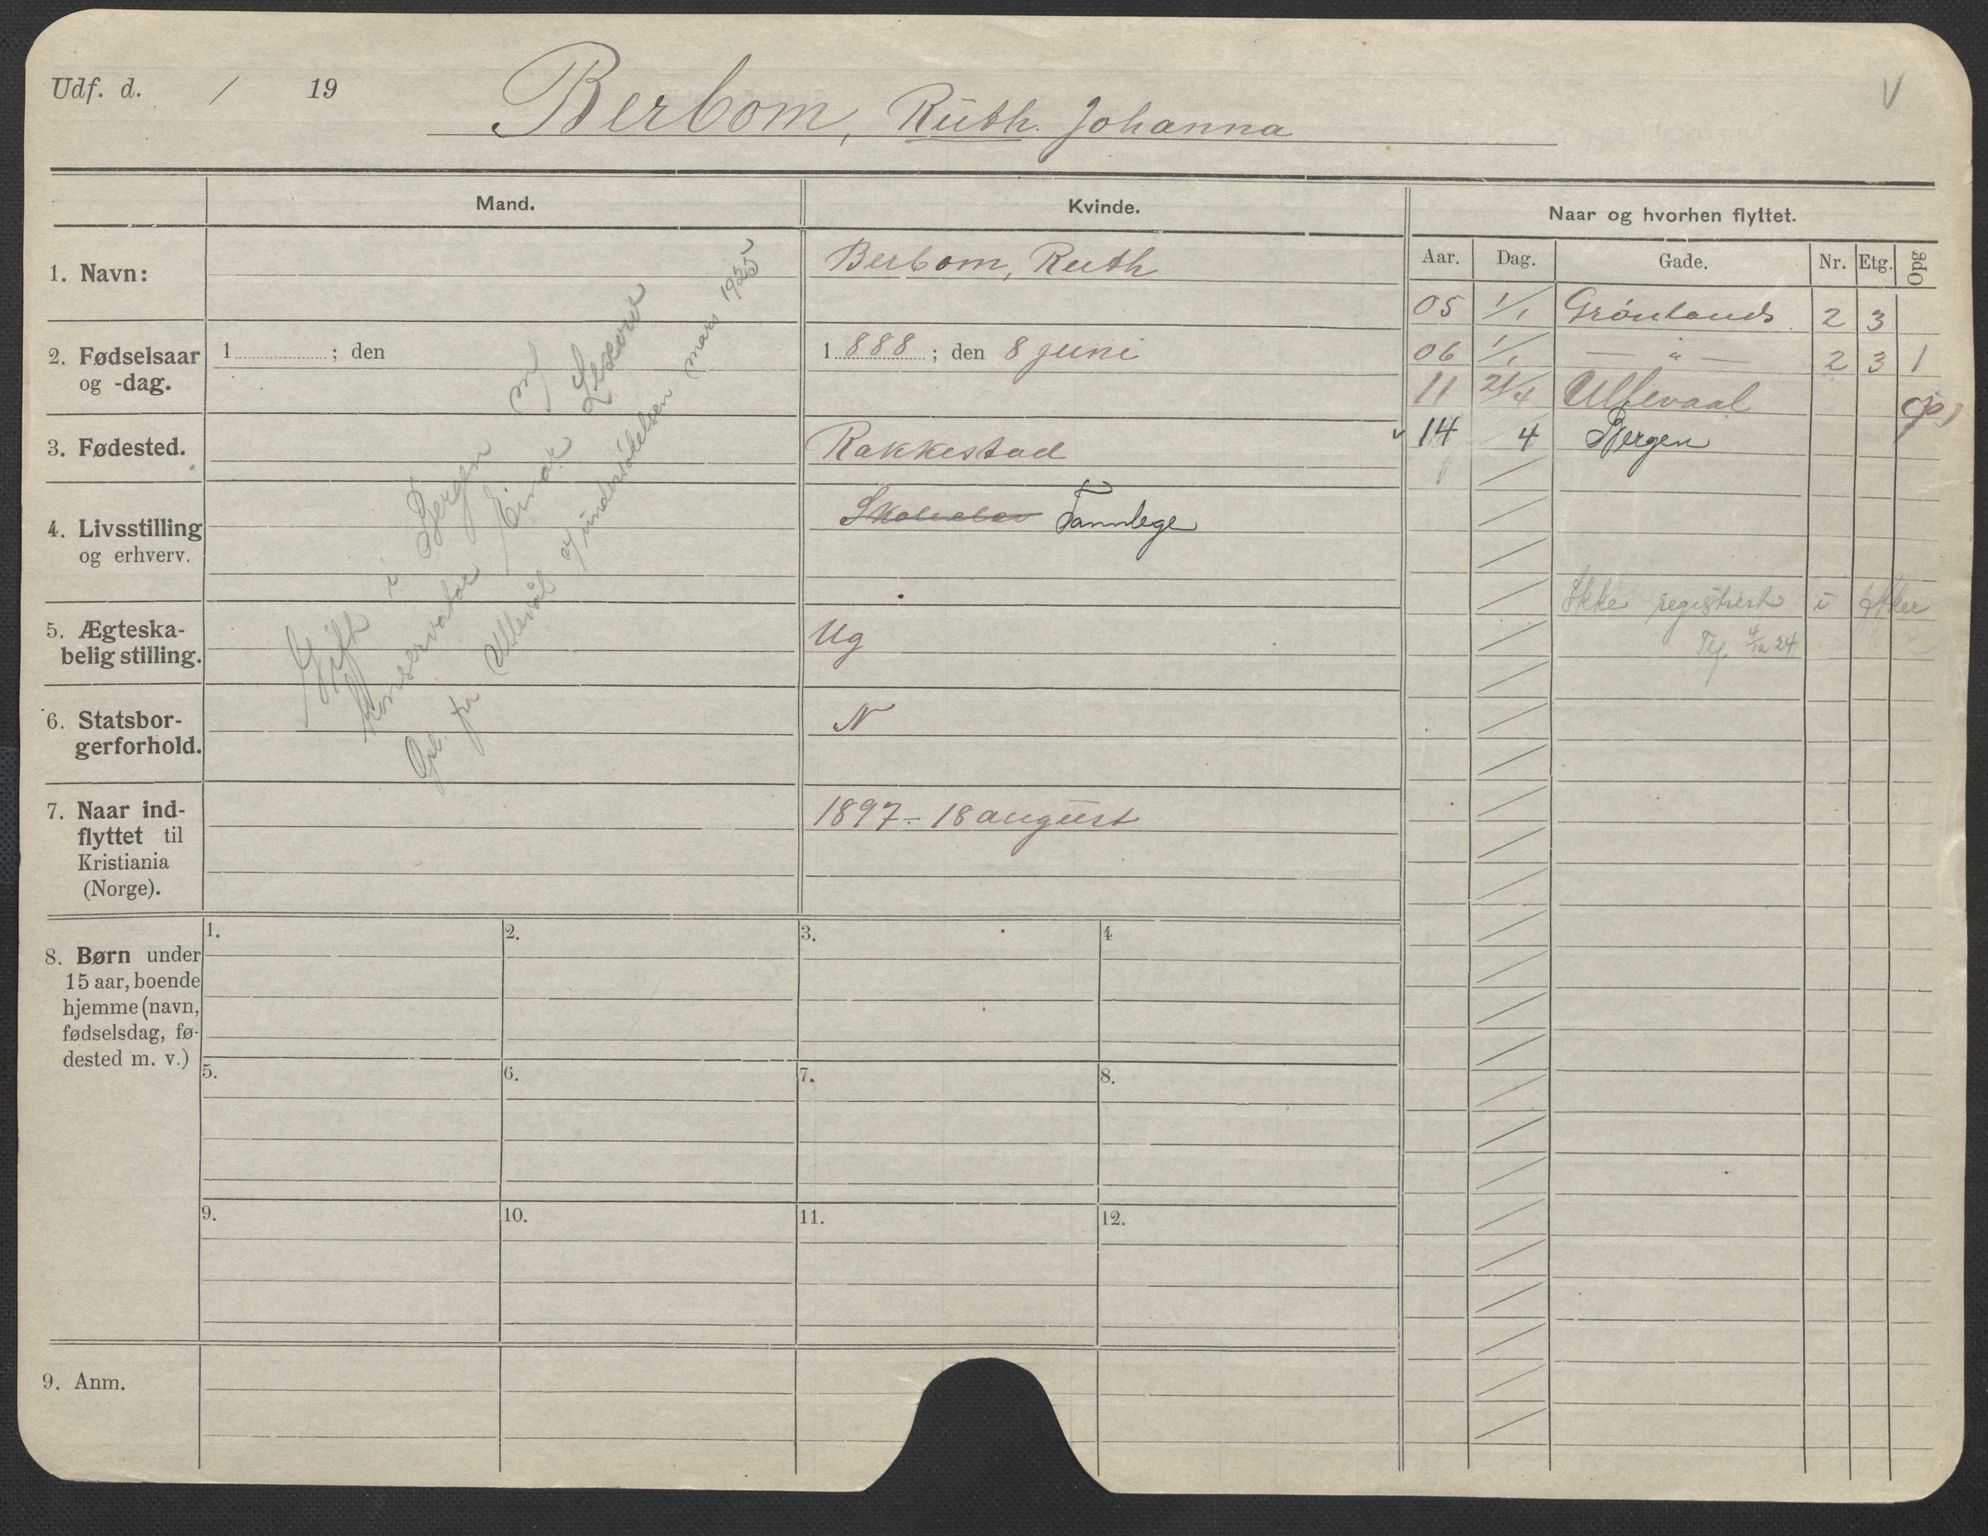 Udf. d. / 19
Berbom, Ruth Johanna
V
Mand.
Kvinde.
Naar og hvorhen flyttet.
Aar. Dag. Gade. Nr. Etg. Opg
1. Navn:
Berbom, Ruth
05 1/1 Grønlands 2 3
2. Fødselsaar
og -dag.
1 ; den
1 888 ; den 8 juni
06 1/1 — " — 2 3 1
11 21/4 Ullevaal
3. Fødested.
Rakkestad
v 14 4 Bergen
4. Livsstilling
og erhverv.
Skoleelev Tannlege
Ikke registrert i Aker
4/12 24
5. Ægteska-
belig stilling.
Ug
6. Statsbor-
gerforhold.
N
7. Naar ind-
flyttet til
Kristiania
(Norge).
1897 - 18 august
Gift i Bergen m/
konservator Einar
fra Ullevål mars 1925
8. Børn under
15 aar, boende
hjemme (navn,
fødselsdag, fø-
dested m. v.)
1. 2. 3. 4
5. 6. 7. 8.
9. 10. 11. 12.
9. Anm.